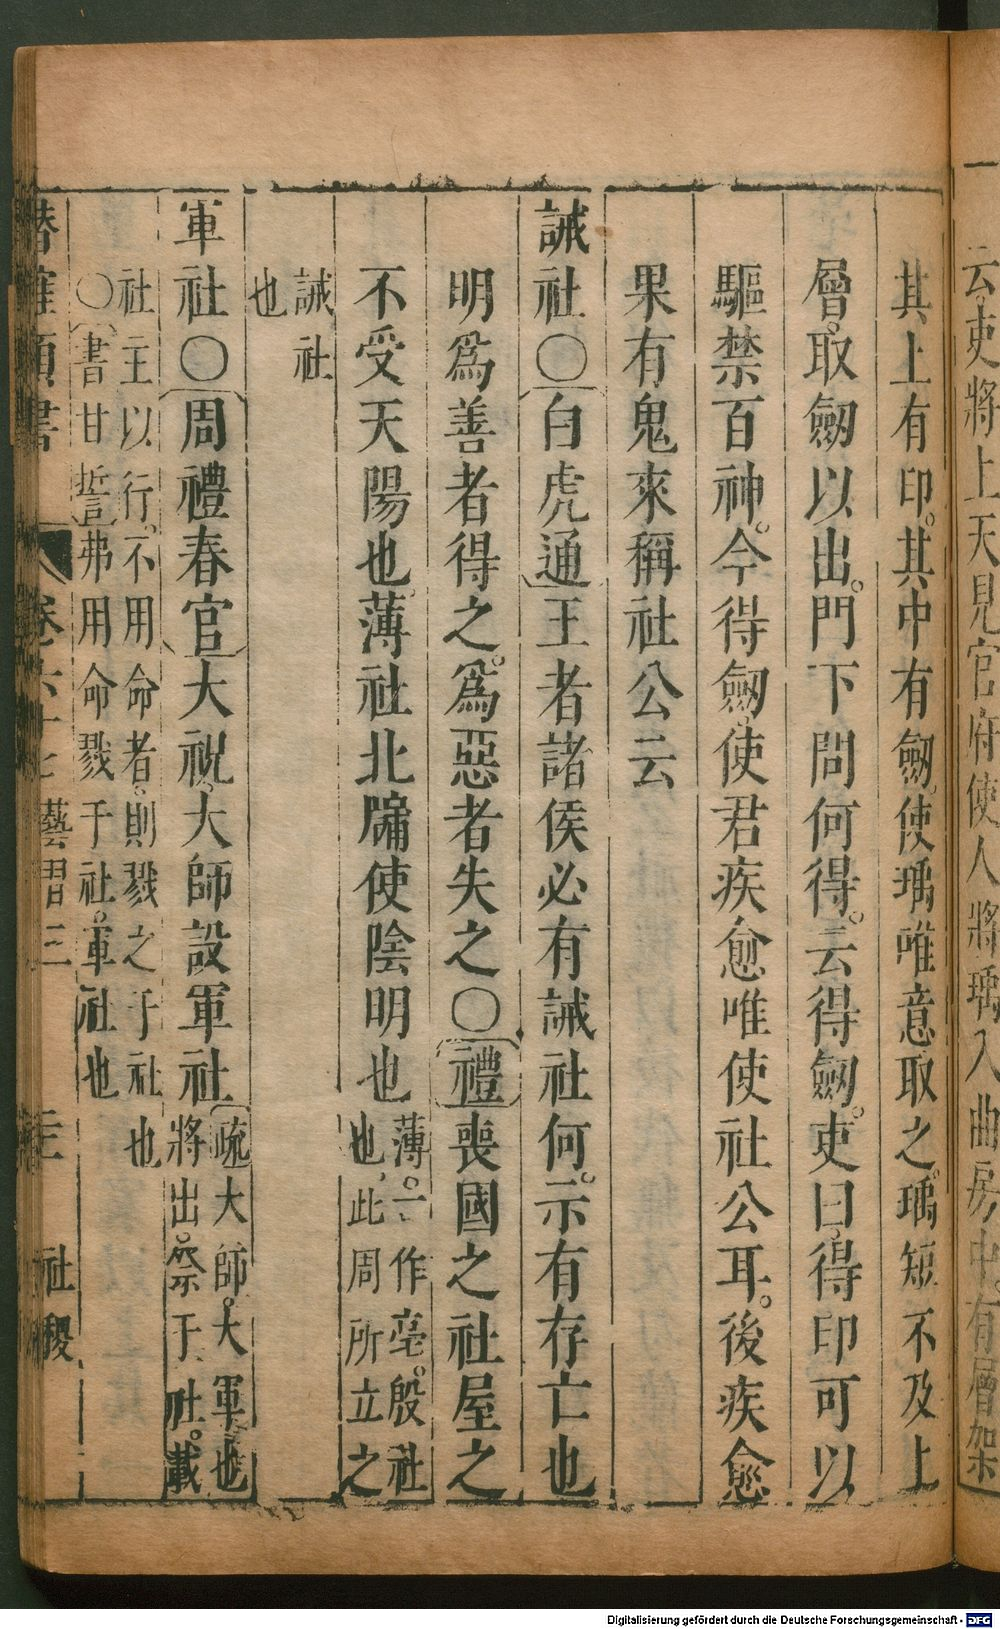 云吏將上天見官府使人將瑀入曲房中有層架
其上有印其中有劒使瑀唯意取之瑀短不及上
層取劒以出門下問何得云得劒吏曰得印可以
驅禁百神今得劒使君疾愈唯使社公耳後疾愈
果有鬼來稱社公云
誡社○白虎通王者諸侯必有誡社何示有存亡也
明爲善者得之爲惡者失之○禮喪國之社屋之
不受天陽也薄社北牖使陰明也
薄一作亳殷社
也此周所立之
誡社
也
軍社○周禮春官大祝大師設軍社
疏大師大軍也
將出祭于社載
社主以行不用命者則戮之于社也
○書甘誓弗用命戮于社軍社也
潛確類書 卷六十七 藝習三 三 社稷
Digitalisierung gefördert durch die Deutsche Forschungsgemeinschaft - DFG